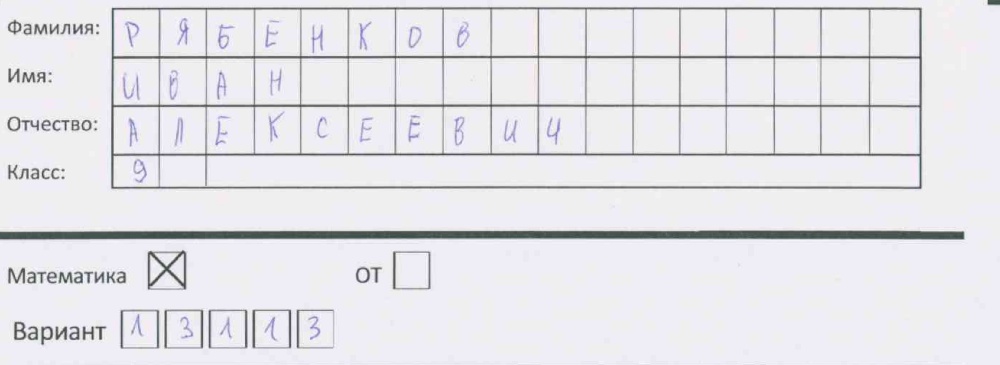 Фамилия: РЯБЕНКОВ
Имя: ИВАН
Отчество: АЛЕКСЕЕВИЧ
Класс: 9
Математика ☒ ОТ ☐
Вариант 13113